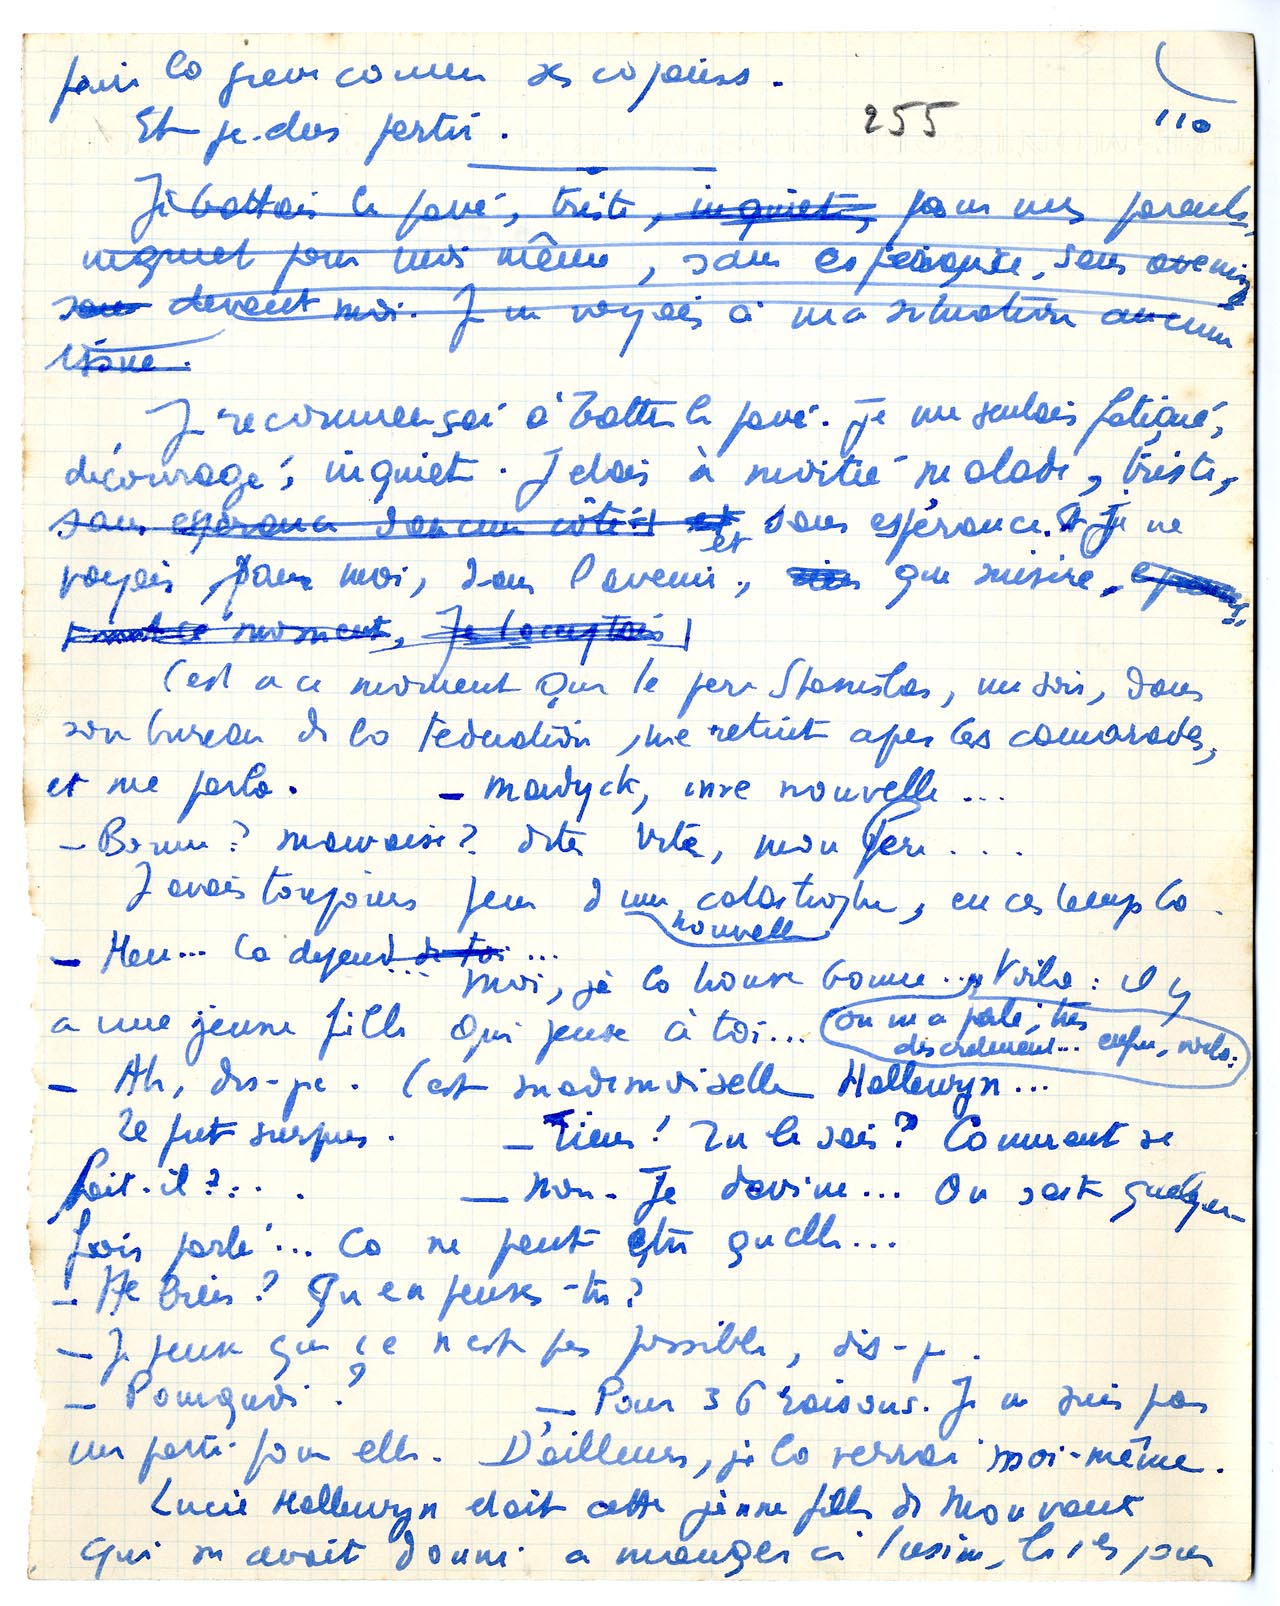 faire la grève comme ses copains.
Et je dus partir.
255
110
Je battais le pavé, triste, inquiet, pour mes parents,
inquiet pour moi même, sans espérance, sans avenir
sous devant moi. Je ne voyais à ma situation aucune
issue.
Je recommençai à battre le pavé. Je me sentais fatigué,
découragé, inquiet. J'étais à moitié malade, triste,
sans espérance d'aucun côté et sans espérance. Et Je ne
voyais pour moi, dans l'avenir, rien que misère,
moment, Je l'acceptais
C'est a ce moment que le père Stanislas, un soir, dans
son bureau de la Fédération, me retint après les camarades,
et me parla. – Mardyck, une nouvelle...
– Bonne? mauvaise? dites vite, mon Père....
J'avais toujours peur d'une nouvelle catastrophe, en ces temps la.
– Heu... Ca dépend de toi...
Moi, je la trouve bonne... Voila: il y
a une jeune fille qui pense à toi... on m'a parlé, très
discrètement... enfin, voila:
– Ah, dis-je. C'est mademoiselle Hallewyn...
Il fut surpris. – Tiens! Tu le sais? Comment se
fait-il?... – Non. Je devine... On s'est quelque
fois parlé... Ca ne peut être qu'elle...
– He bien? Qu'en penses-tu?
– Je pense que ce n'est pas possible, dis-je.
– Pourquoi? – Pour 36 raisons. Je ne suis pas
un parti pour elle. D'ailleurs, je la verrai moi-même.
Lucie Hallewyn était cette jeune fille de Mouvaux
qui m'avait donné a manger à l'usine, les jours